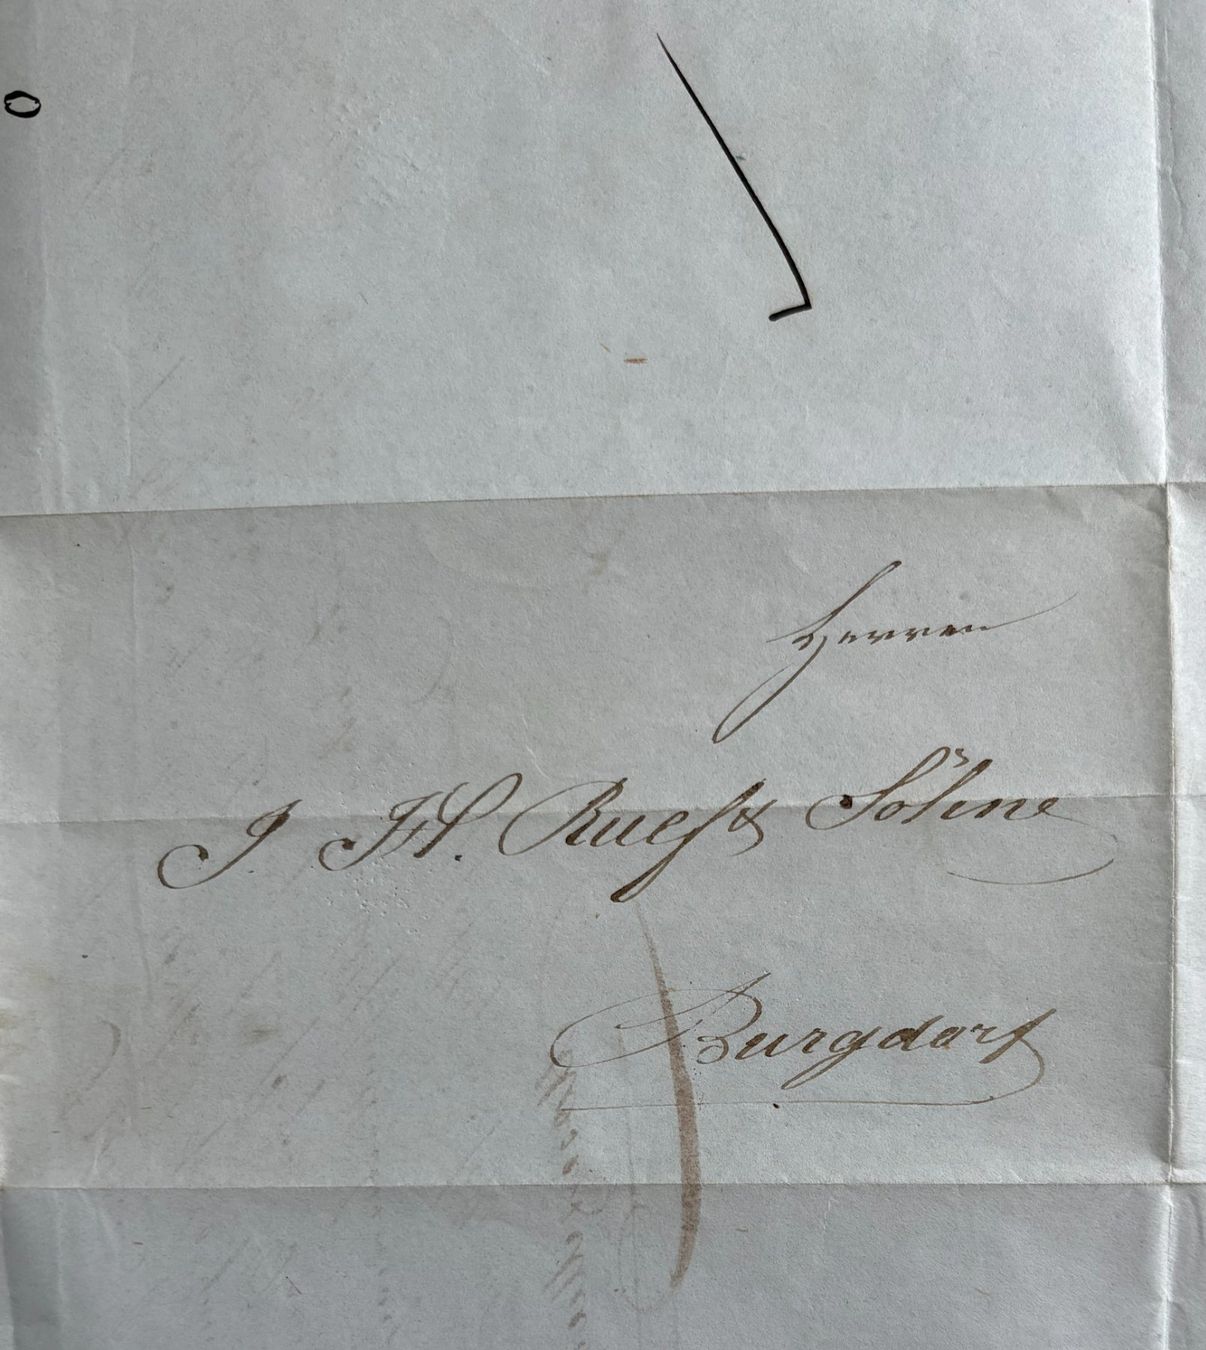 Herren
J. H. Ruef & Söhne
Burgdorf